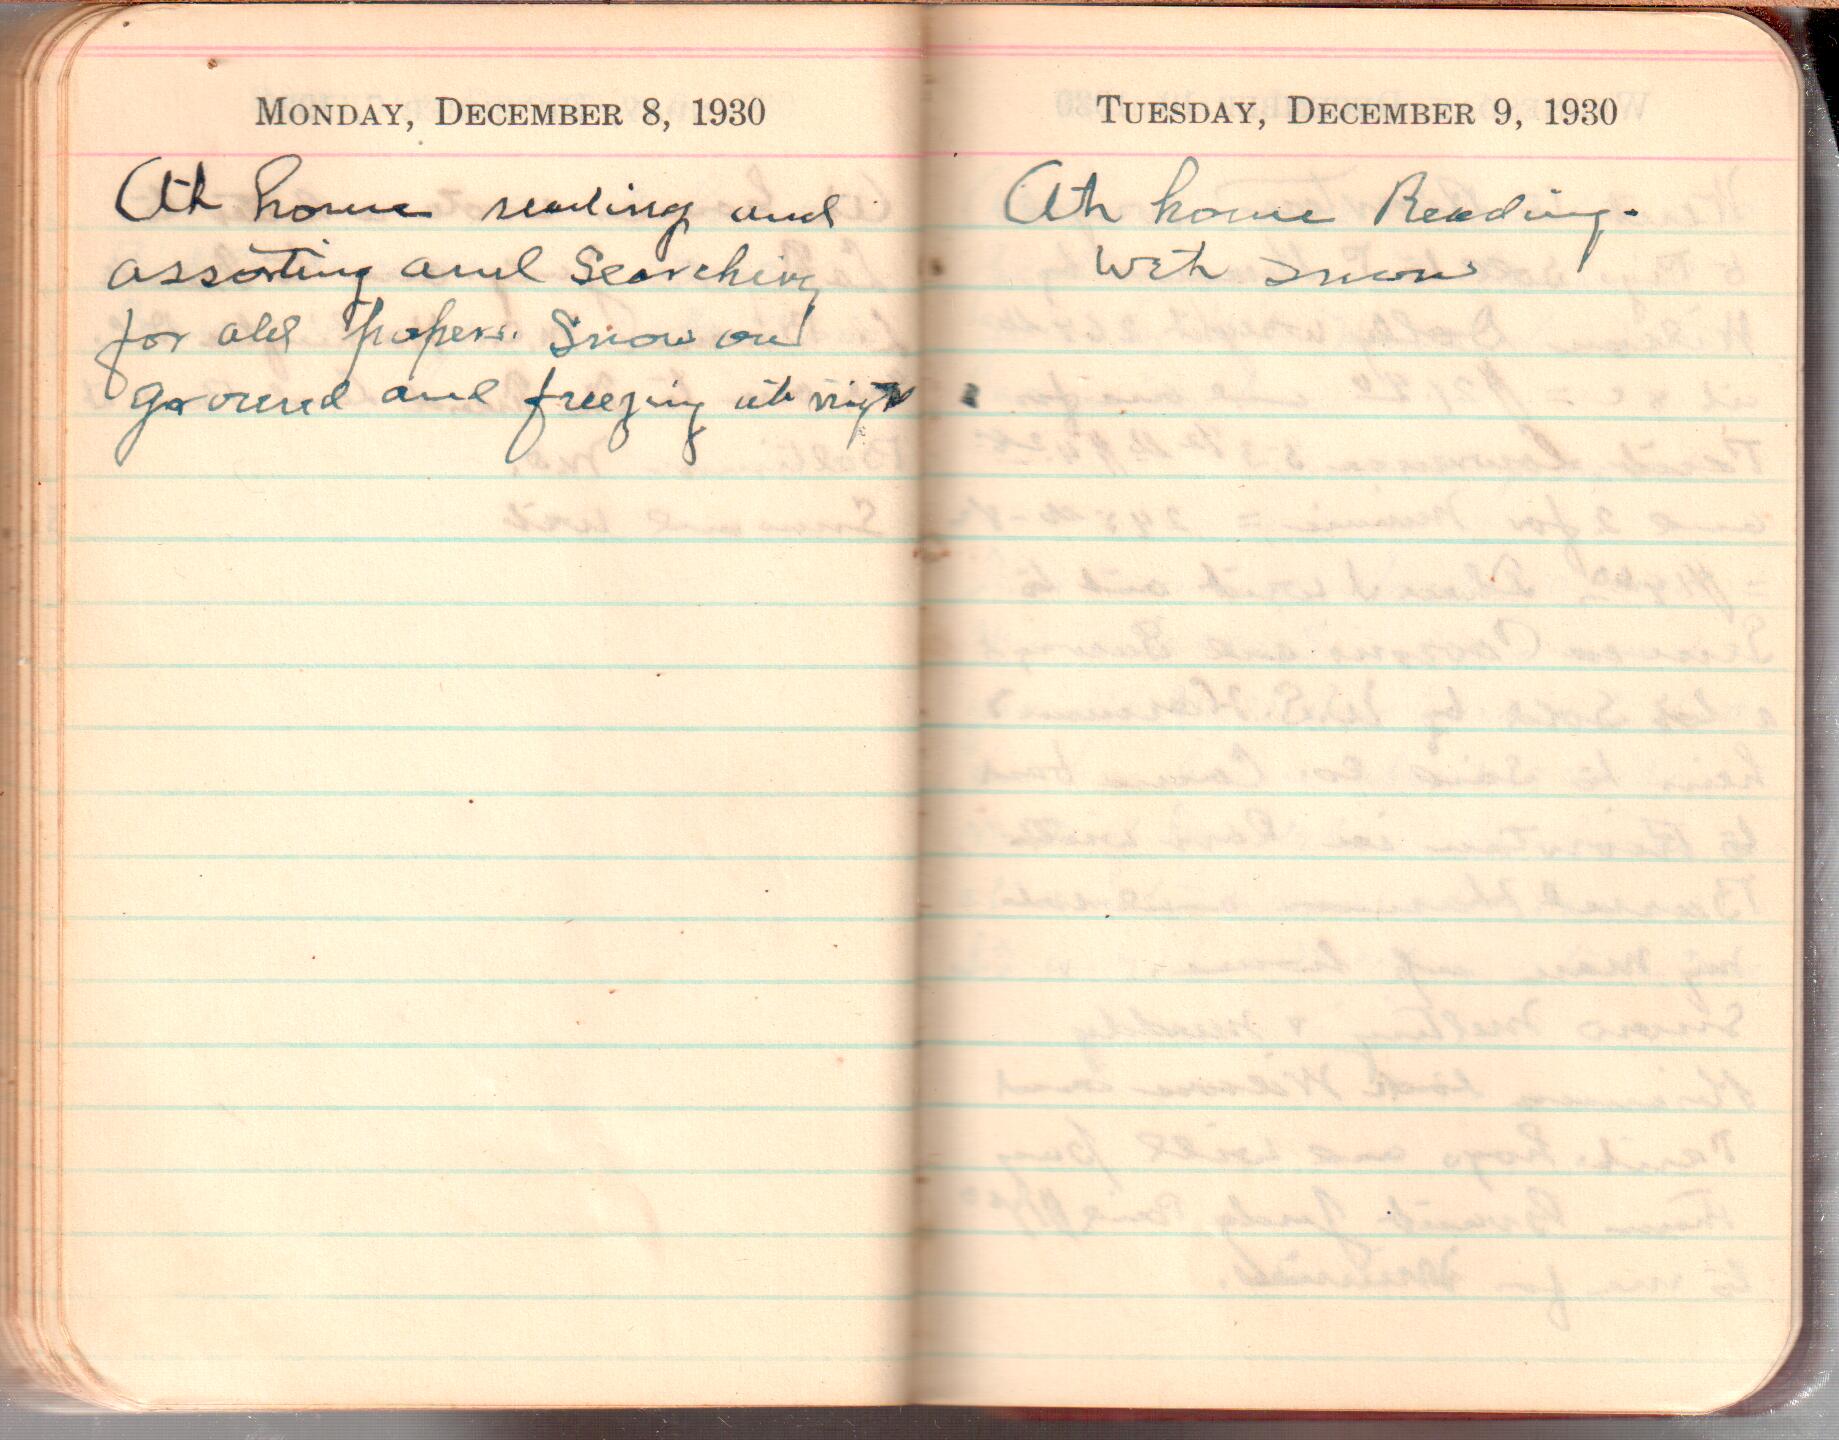 MONDAY, DECEMBER 8, 1930
At home reading and
assorting and Searching
for old papers. Snow on
ground and freezing at night
TUESDAY, DECEMBER 9, 1930
At home Reading.
Wet snow